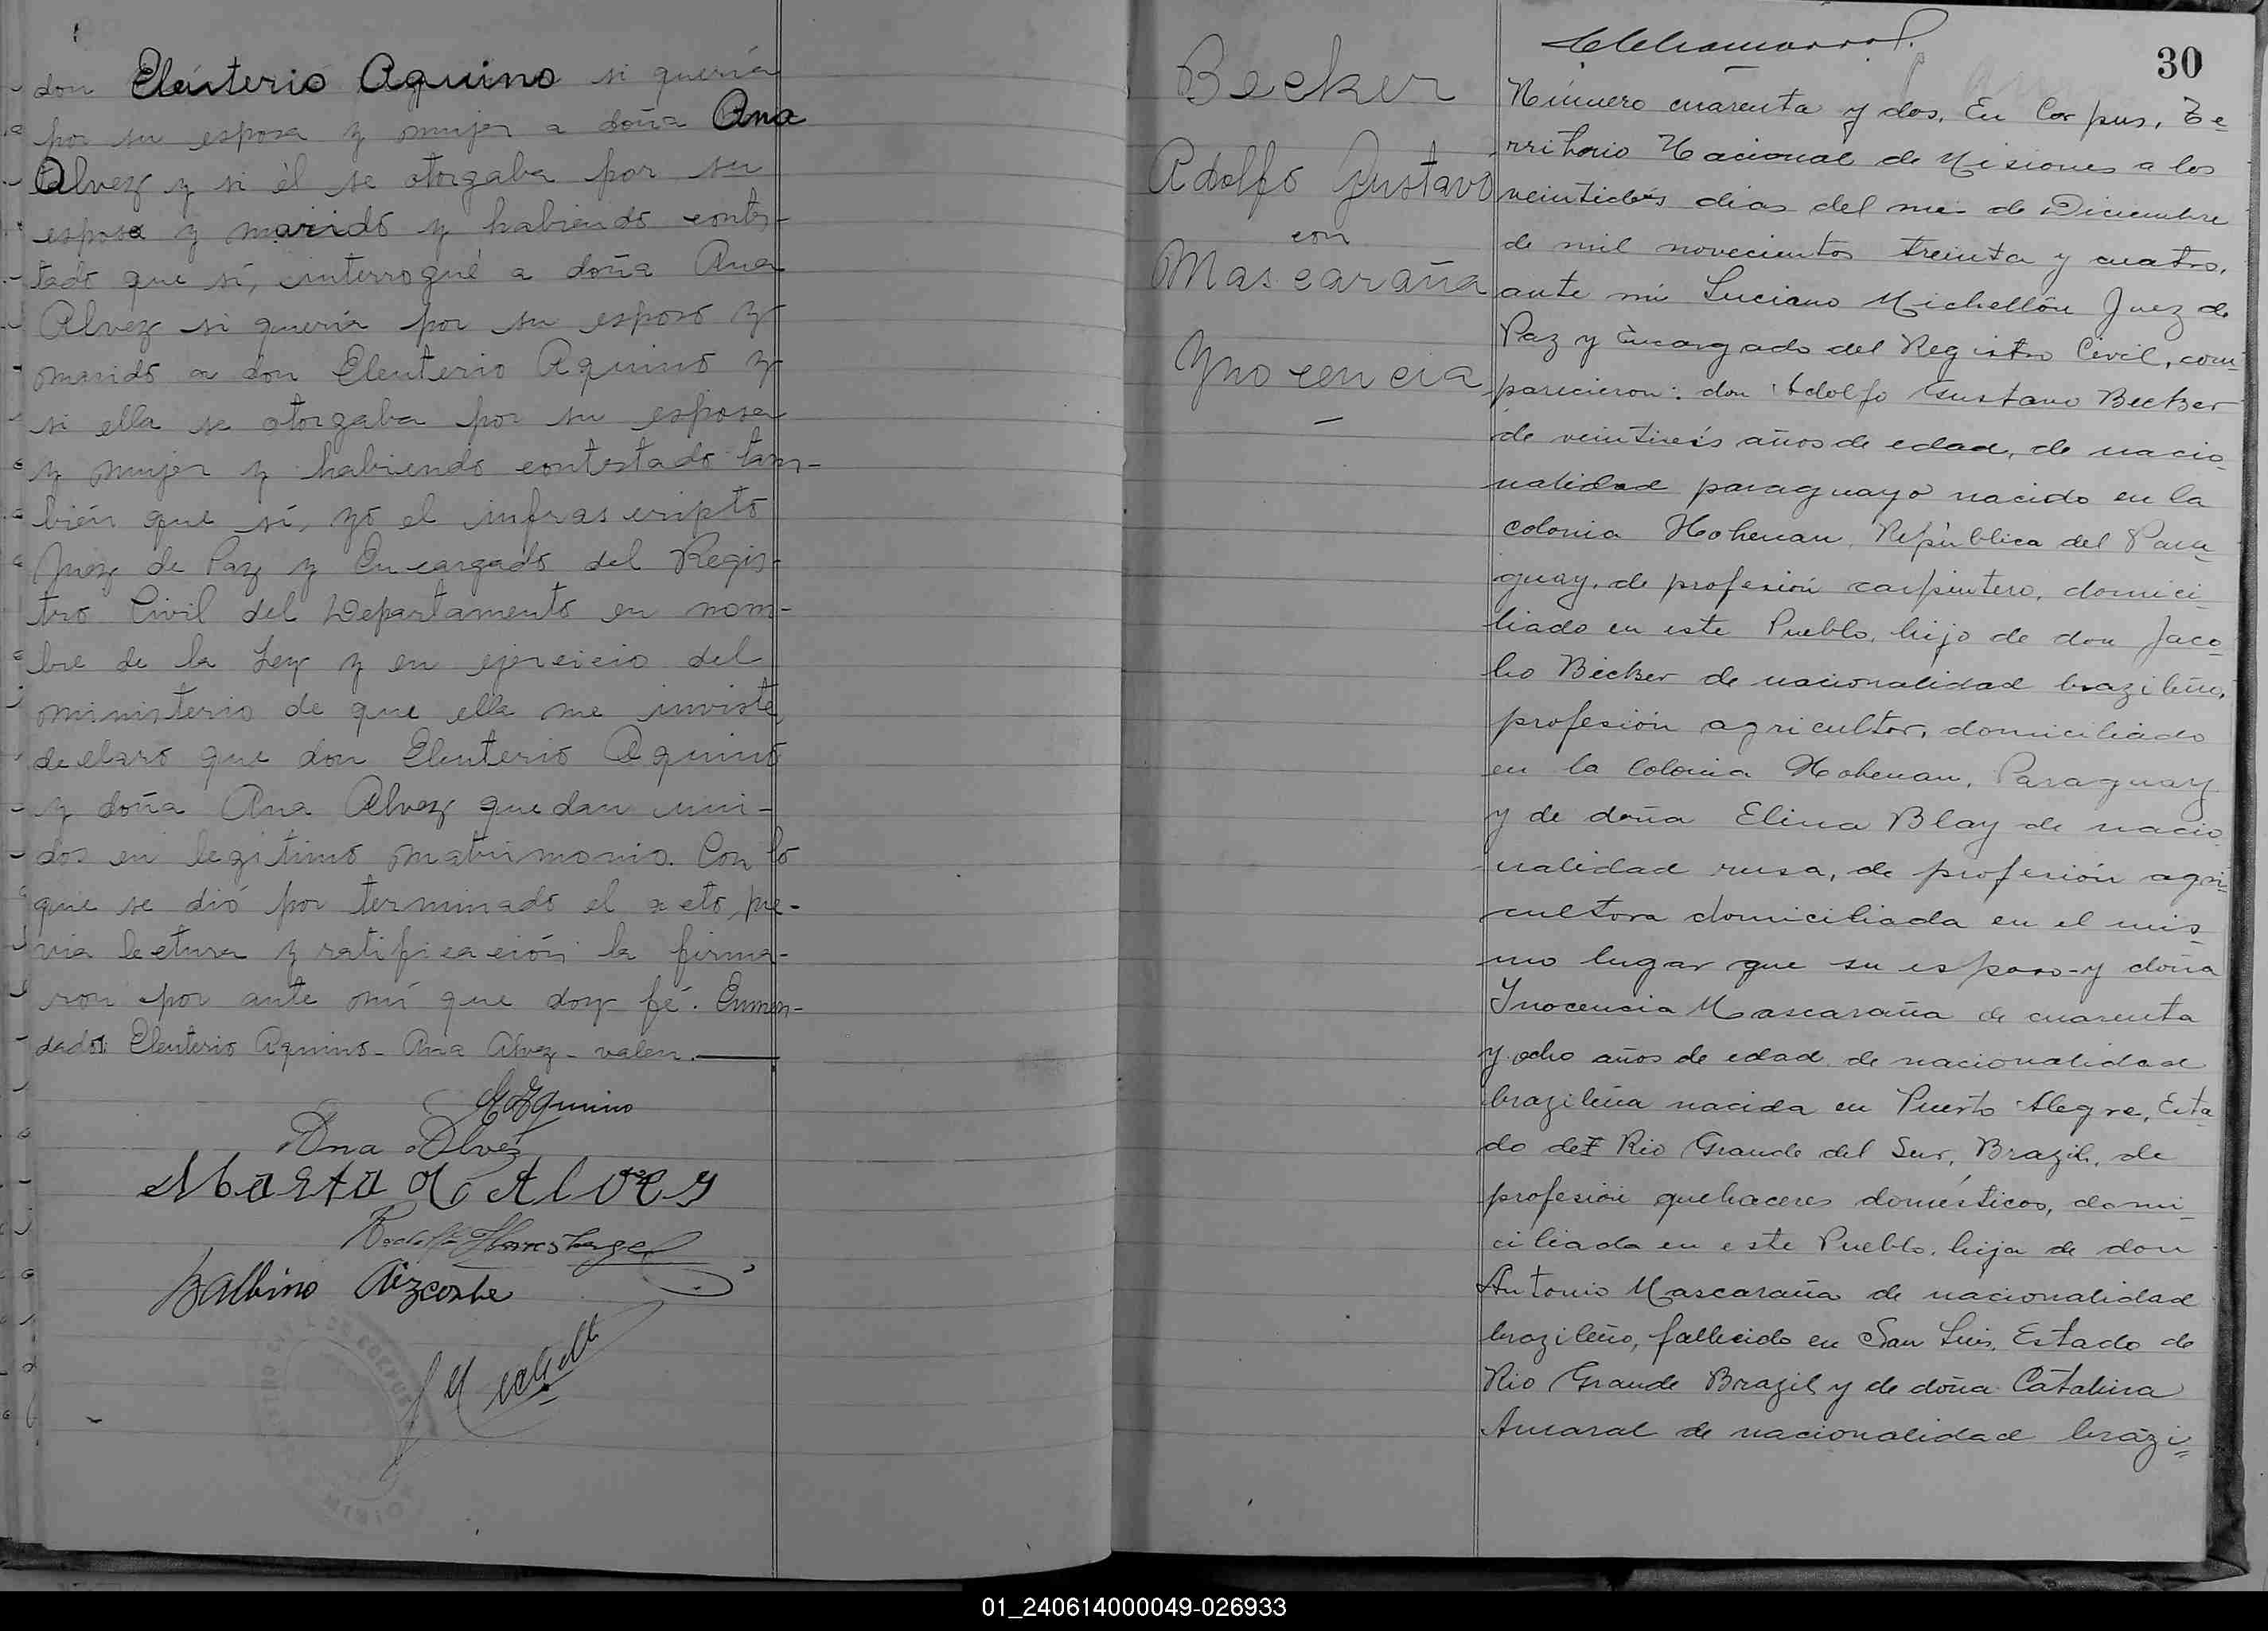 don Eleuterio Aquino si quería
por su esposa y mujer a doña Ana
Alvez y si él se otorgaba por su
esposo y marido y habiendo contes-
tado que sí, interrogué a doña Ana
Alvez si quería por su esposo y
marido a don Eleuterio Aquino y
si ella se otorgaba por su esposa
y mujer y habiendo contestado tam-
bién que sí, yo el infrascripto
Juez de Paz y Encargado del Regis-
tro Civil del Departamento en nom-
bre de la Ley y en ejercicio del
ministerio de que ella me inviste
declaro que don Eleuterio Aquino
y doña Ana Alvez quedan uni-
dos en legítimo matrimonio. Con lo
que se dió por terminado el acto, pre-
via lectura y ratificación la firma-
ron por ante mí que doy fé. Enmen-
dados: Eleuterio Aquino - Ana Alvez - valen.
E Aquino
Ana Alvez
Balbino Aizcorbe
Becker
Adolfo Gustavo
con
Mascaraña
Ynocencia
30
Número cuarenta y dos. En Corpus, Te-
rritorio Nacional de Misiones a los
veintidós días del mes de Diciembre
de mil novecientos treinta y cuatro,
ante mi Luciano Michellón Juez de
Paz y Encargado del Registro Civil, com-
parecieron: don Adolfo Gustavo Becker
de veintiseis años de edad, de nacio-
nalidad paraguayo nacido en la
colonia Hohenau, República del Para-
guay, de profesión carpintero, domici-
liado en este Pueblo, hijo de don Jaco-
bo Becker de nacionalidad brazileño,
profesión agricultor, domiciliado
en la Colonia Hohenau, Paraguay
y de doña Elina Blay de nacio-
nalidad rusa, de profesión agri-
cultora domiciliada en el mis-
mo lugar que su esposo - y doña
Inocencia Mascaraña de cuarenta
y ocho años de edad de nacionalidad
brazileña nacida en Puerto Alegre, Esta-
do de Rio Grande del Sur, Brazil, de
profesión quehaceres domésticos, domi-
ciliada en este Pueblo, hija de don
Antonio Mascaraña de nacionalidad
brazileño, fallecido en San Luis, Estado de
Rio Grande Brazil y de doña Catalina
Amaral de nacionalidad brazi-
01_240614000049-026933